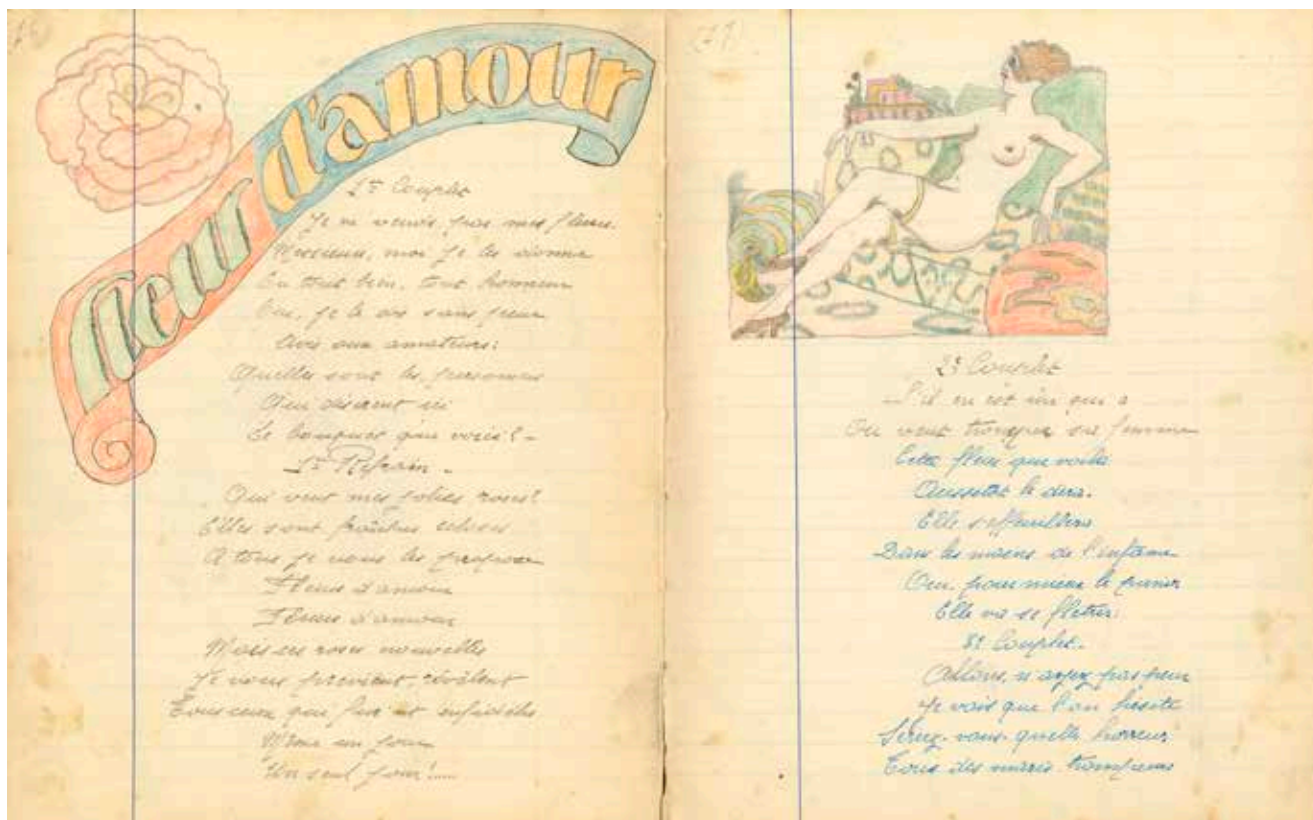 76
Fleur d'amour
1er Couplet
Je ne vends pas mes fleurs
Messieurs, moi je les donne
En tout bien, tout honneur
Oui, je le dis sans peur
Avis aux amateurs:
Quelles sont les personnes
Qui désirent ici
Le bouquet que voici? -
1er Refrain -
Qui veut mes jolies roses?
Elles sont fraîches écloses
A tous je vous les propose
Fleurs d'amour
Fleurs d'amour
Mais ces roses nouvelles
Je vous previent, révèlent
Tous ceux qui fur'nt infidèles
Même un jour
Un seul jour!.....
77
2e Couplet
S'il en est un qui a
Ou veut tromper sa femme
Cette fleur que voilà
Aussitôt le dira.
Elle s'effeuillera
Dans les mains de l'infâme
Ou, pour mieux le punir
Elle va se flétrir.
3e Couplet.
Allons, n'ayez pas peur
Je vois que l'on hésite
Seriez-vous quelle horreur
Tous des maris trompeurs